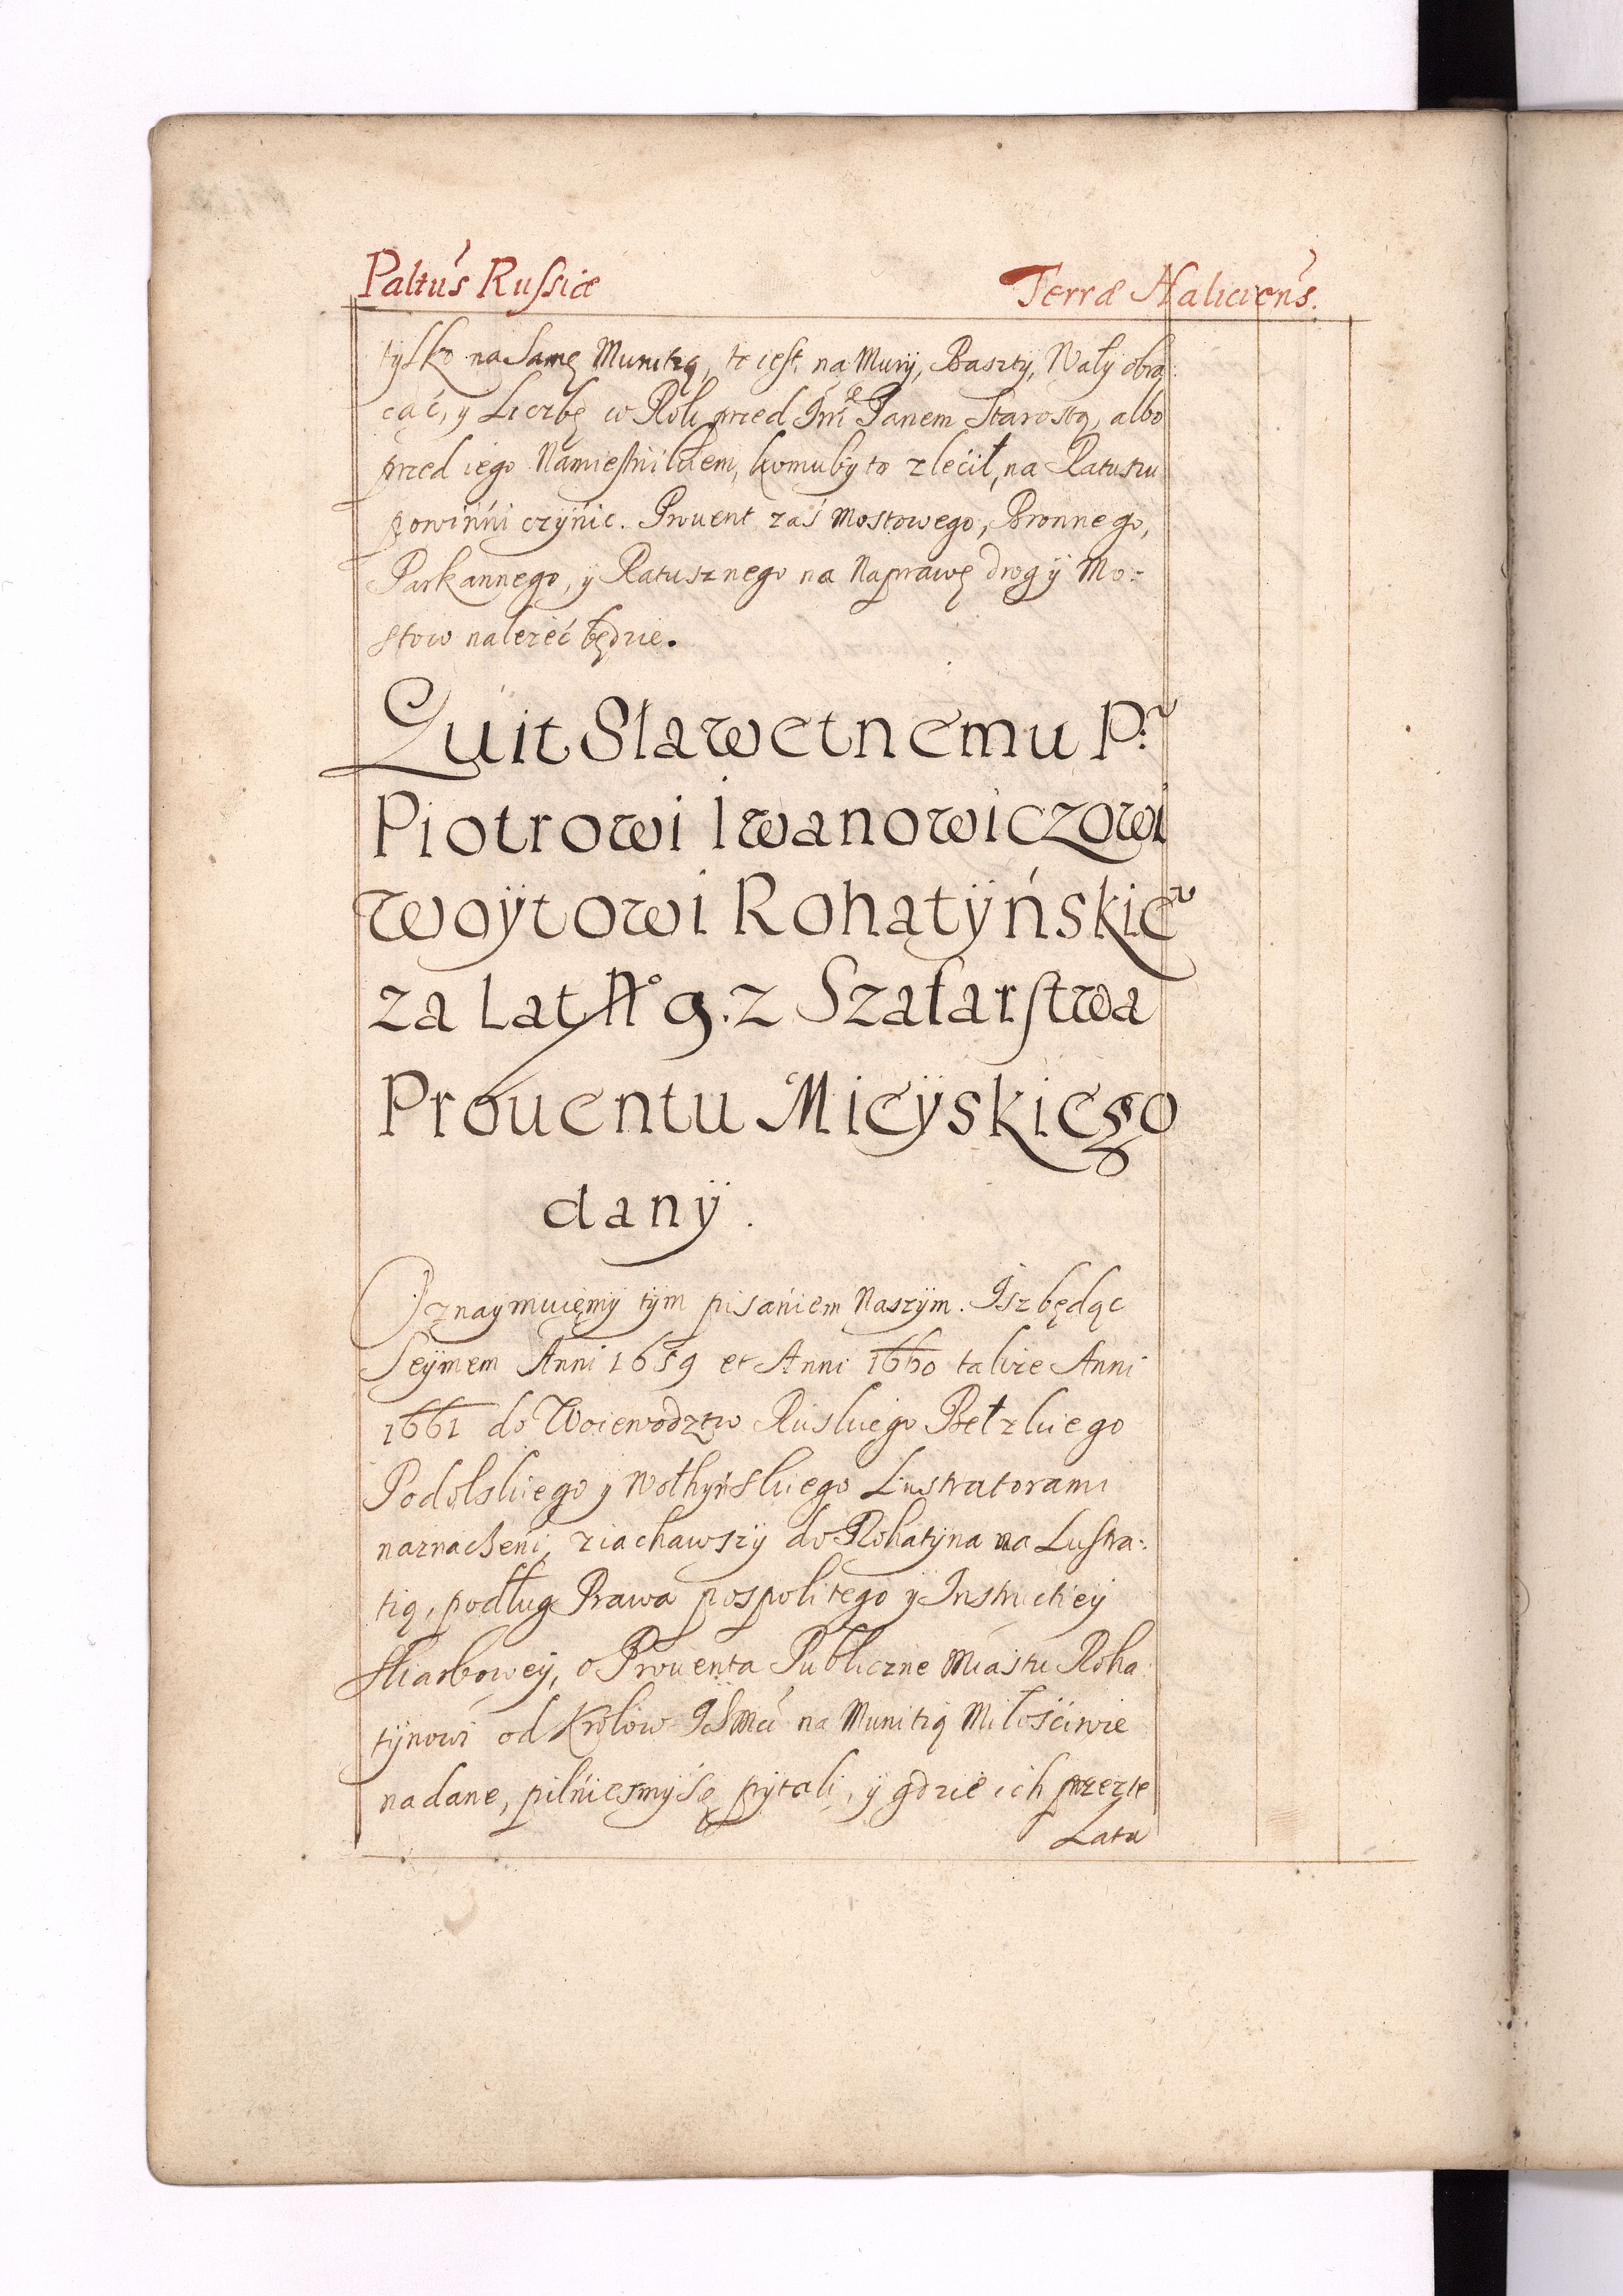 Paltus Russiæ Terræ Haliciens.
tylko na Samę Munitią, to iest na Murÿ, Basztÿ, Wałÿ obra:
cać, y Liczbę co Rok przed Jm Panem Starostą, albo
przed iego Namiestnikiem, komubÿ to zlecił, na Ratuszu
powinni czÿnic. Prouent zaś Mostowego, Bronnego,
Parkannego, ÿ Ratusznego na Naprawę drog ÿ Mo:
stow należeć będzie.
Quit Sławetnemu P:
Piotrowi Iwanowiczowi
Woÿtowi Rohatÿńskie
za Lat No 9. z Szafarstwa
Prouentu Mieÿskiego
danÿ.
Oznaÿmuięmÿ tÿm pisaniem Naszÿm. Isz będąc
Seÿmem Anni 1659 et Anni 1660 także Anni
1661 do Woiewodztw Ruskiego Bełzkiego
Podolskiego ÿ Wołhyńskiego Lustratorami
naznaczeni, ziachawszÿ do Rohatÿna na Lustra:
tią, podług Prawa pospolitego ÿ Instructieÿ
Skarboweÿ, o Prouenta Publiczne Miastu Roha:
tÿnowi od Krolow IchMci na Munitią Miłościwie
nadane, pilniesmÿ Sę pÿtali, ÿ gdzie ich przez te
Lata